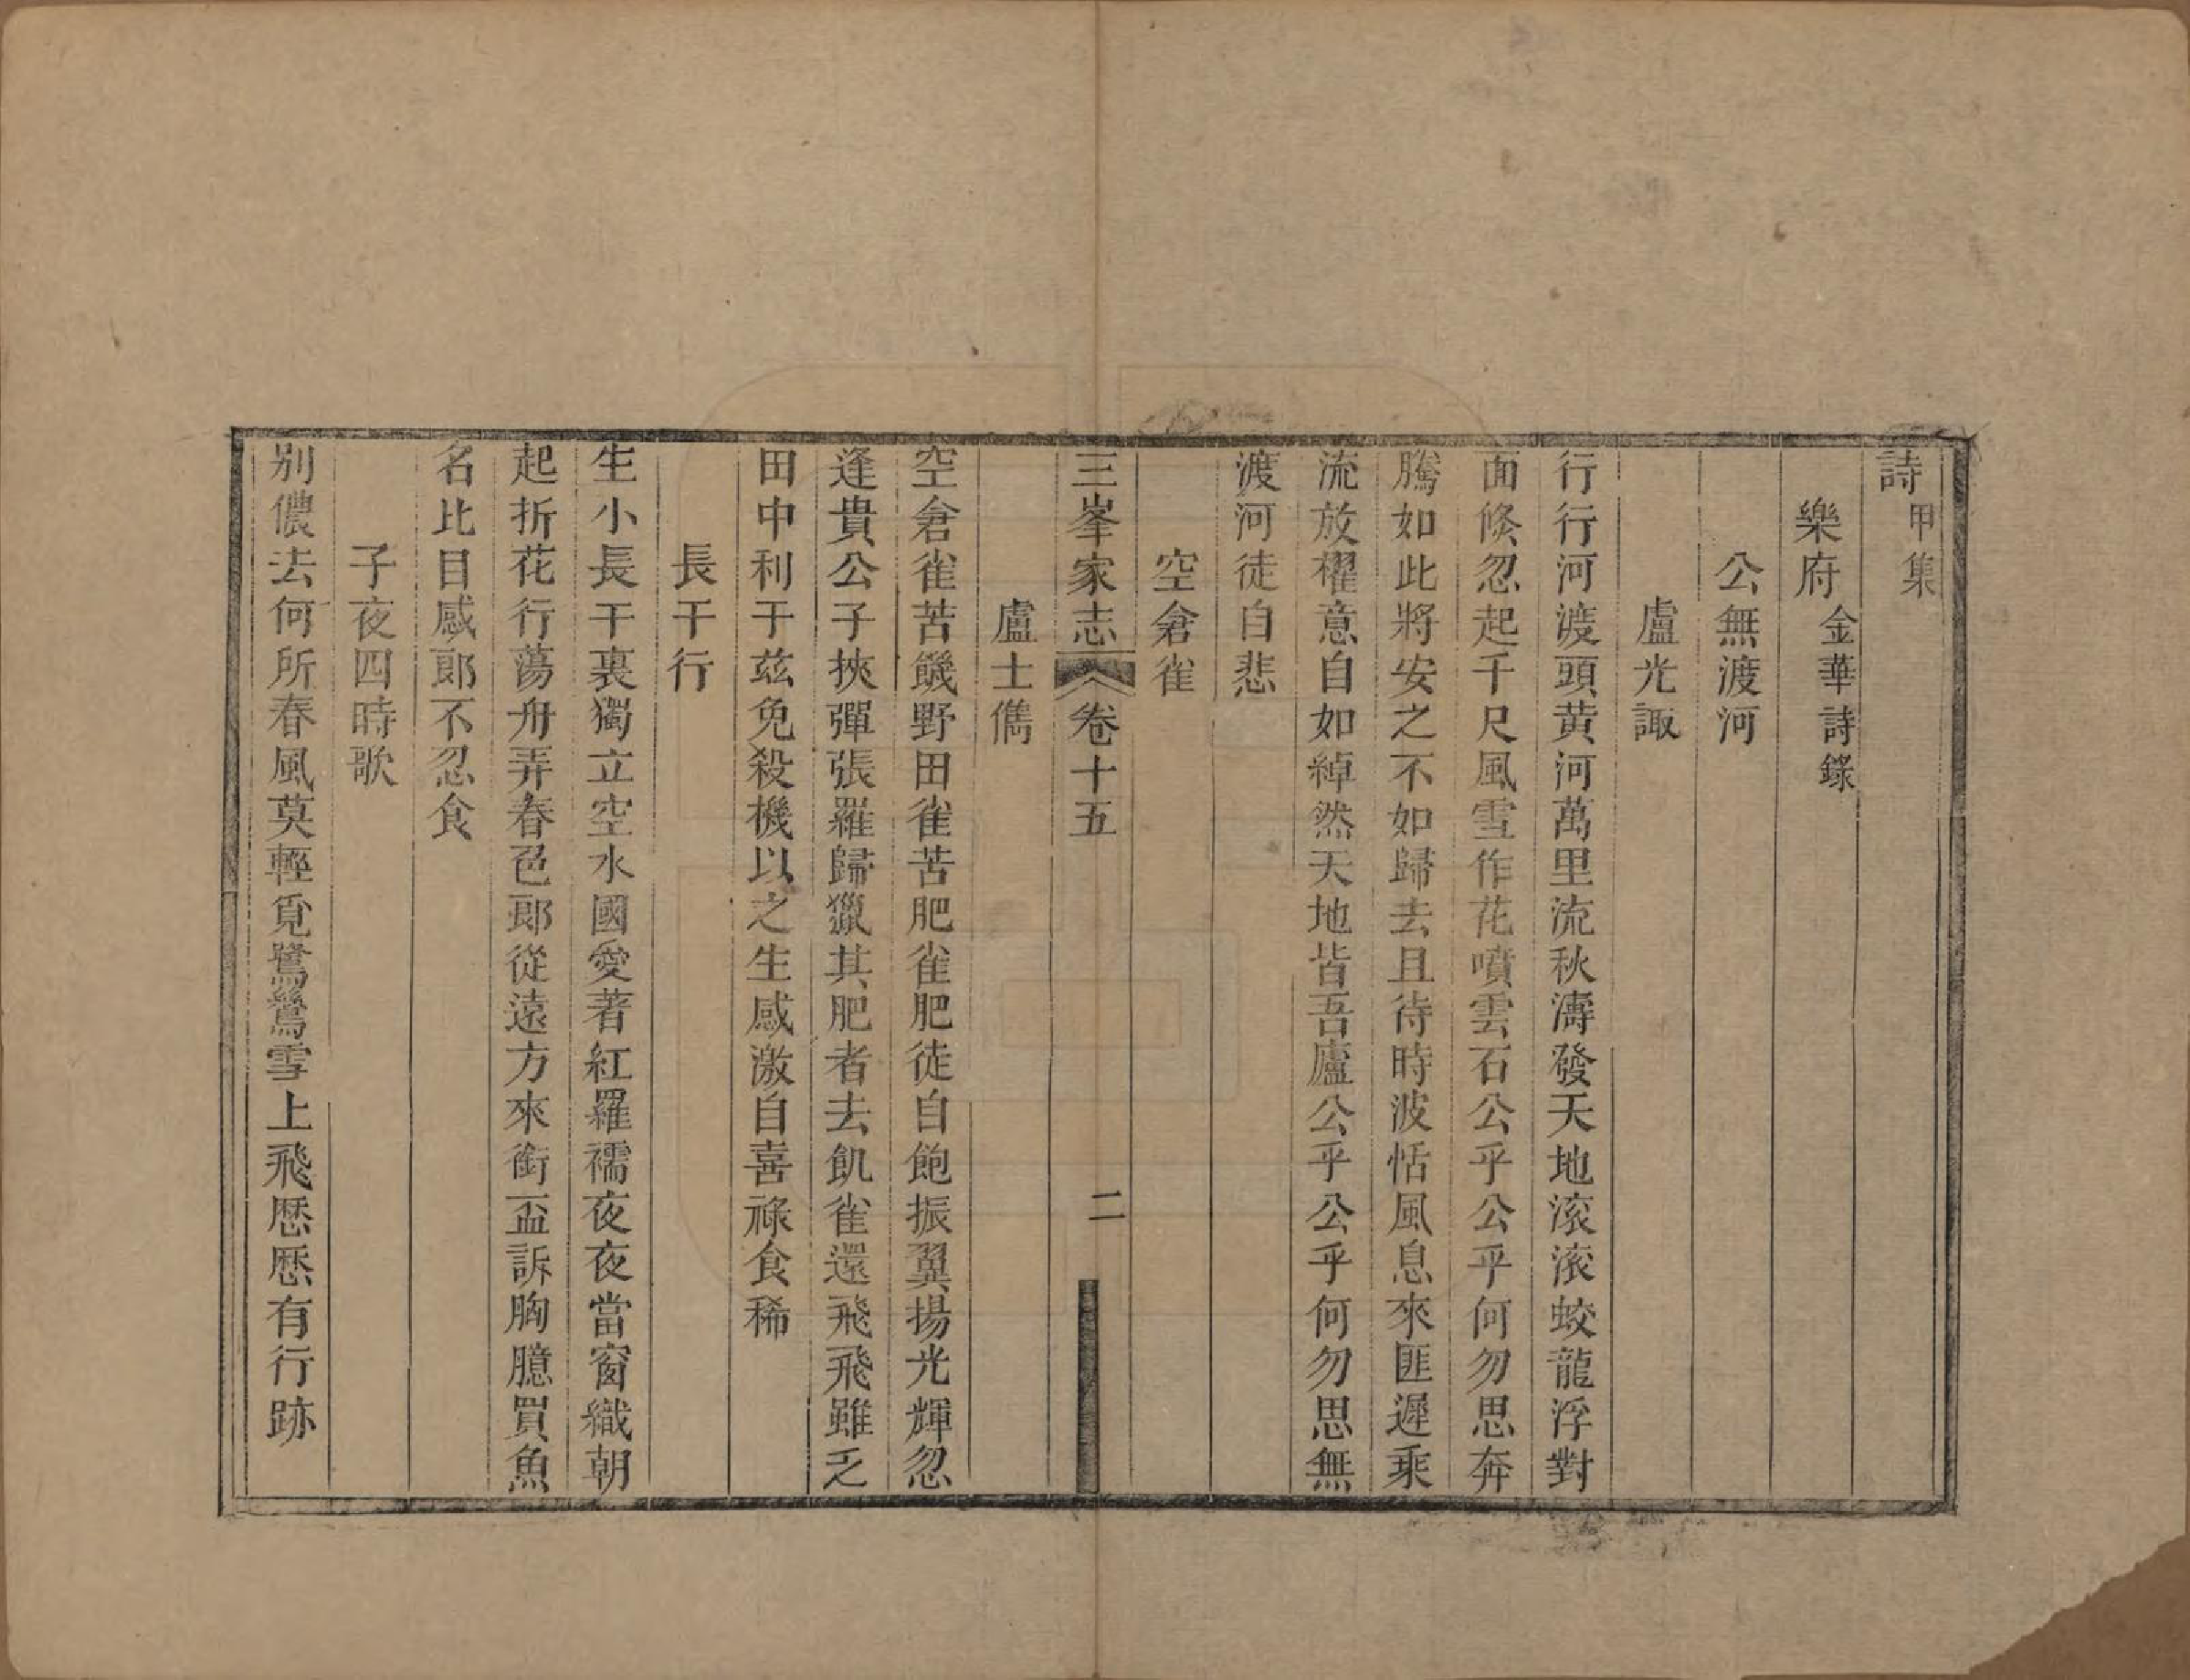 詩甲集
樂府金華詩錄
公無渡河
盧光諏
行行河渡頭黄河萬里流秋濤發天地滚滚蛟龍浮對
面倐忽起千尺風雪作花噴雲石公乎公乎何勿思奔
騰如此將安之不如歸去且待時波恬風息來匪遲乘
流放櫂意自如綽然天地皆吾廬公乎公乎何勿思無
渡河徒自悲
空倉雀
三峯家志
卷十五
二
盧士儁
空倉雀苦饑野田雀苦肥雀肥徒自飽振翼揚光輝忽
逢貴公子挾彈張羅歸獵其肥者去飢雀還飛飛雖乏
田中利于兹免殺機以之生感激自喜祿食稀
長干行
生小長干裏獨立空水國愛著紅羅襦夜夜當窗織朝
起折花行蕩舟弄春色郎從遠方來銜盃訴胸臆買魚
名比目感郎不忍食
子夜四時歌
别儂去何所春風莫輕覓鷺鷥雪上飛歴歴有行跡